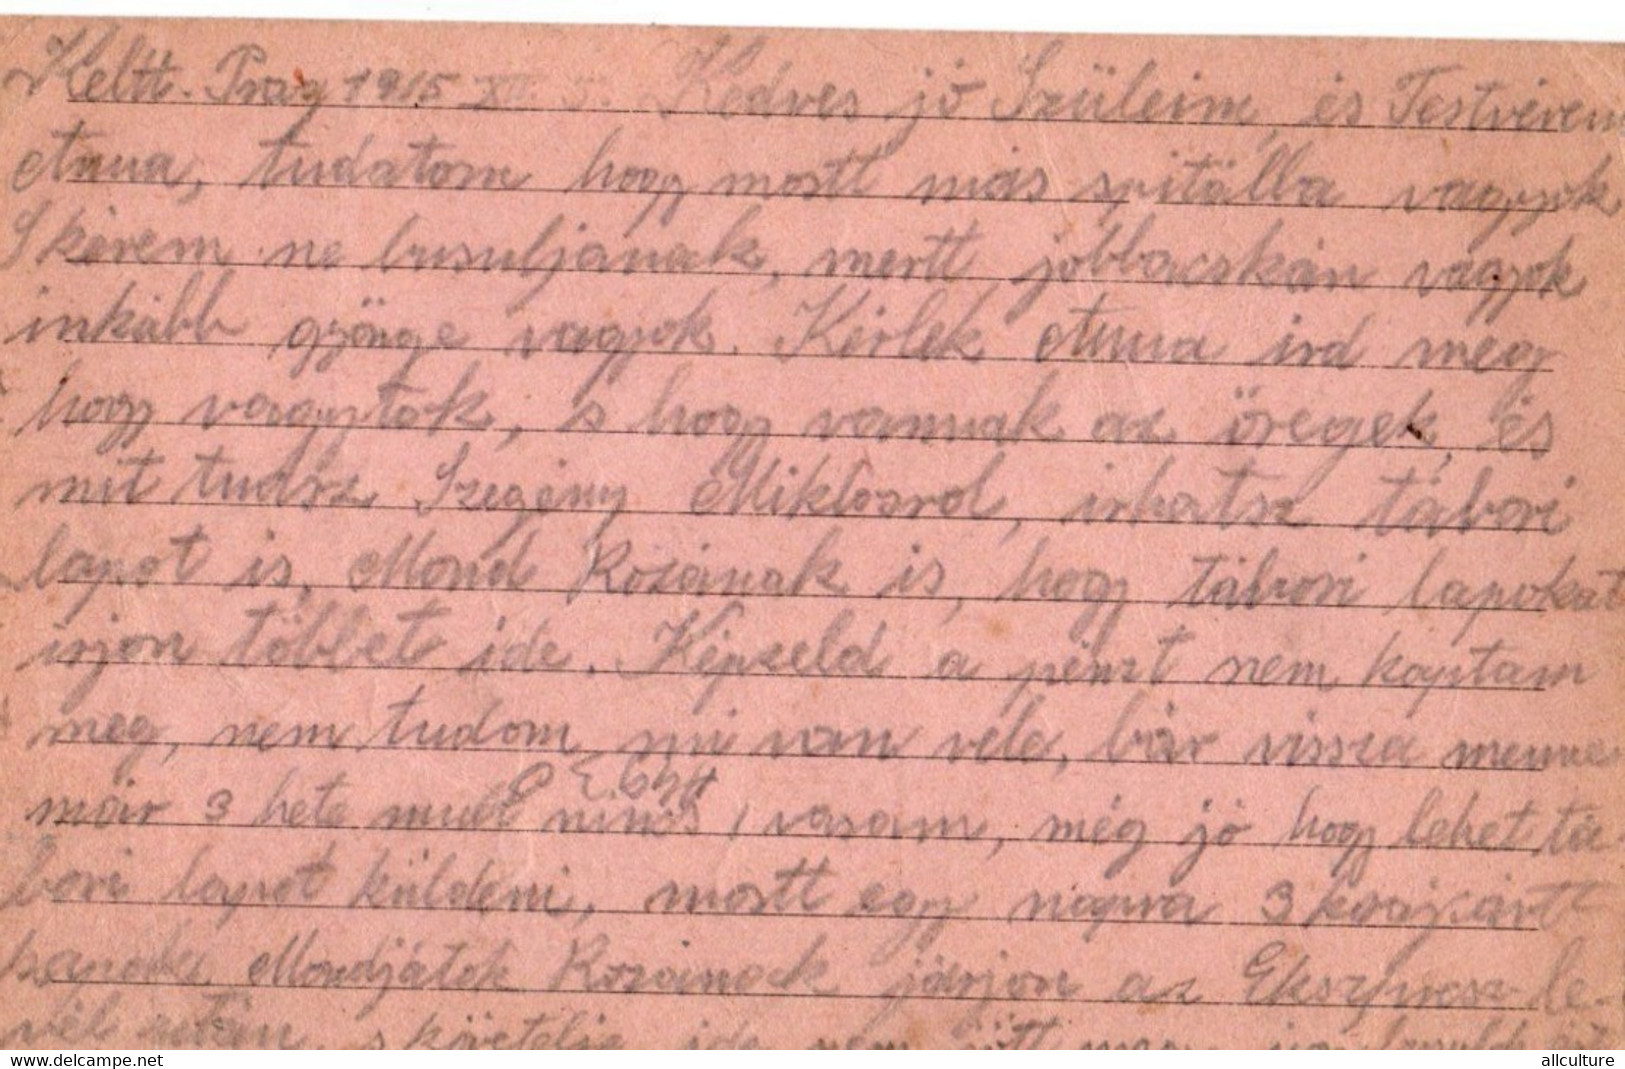 Keltt. Prág 1915 XII 5. Kedves jó Szüleim, és Testvérem
Anna, tudatom hogy mostt más spitálba vagyok
S kérem ne busuljanak, mertt jobbacskán vagyok
inkább gyönge vagyok. Kérlek Anna ird meg
hogy vagytok, s hogy vannak az öregek, és
mit tudsz Szegény Miklosrol, irhatsz tábori
lapot is, Mond Rozának is, hogy tábori lapokat
irjon többet ide. Képzeld a pénzt nem kaptam
meg, nem tudom mi van véle, bár vissza menne
már 3 hete mult nincs vasam, még jó hogy lehet tá-
bori lapot küldeni, mostt egy napra 3 krajcártt
kapok Mondjátok Rozának járjon az Ekszpressz le-
vél után, s követelje ide nem jött meg
delcampe.net
allculture